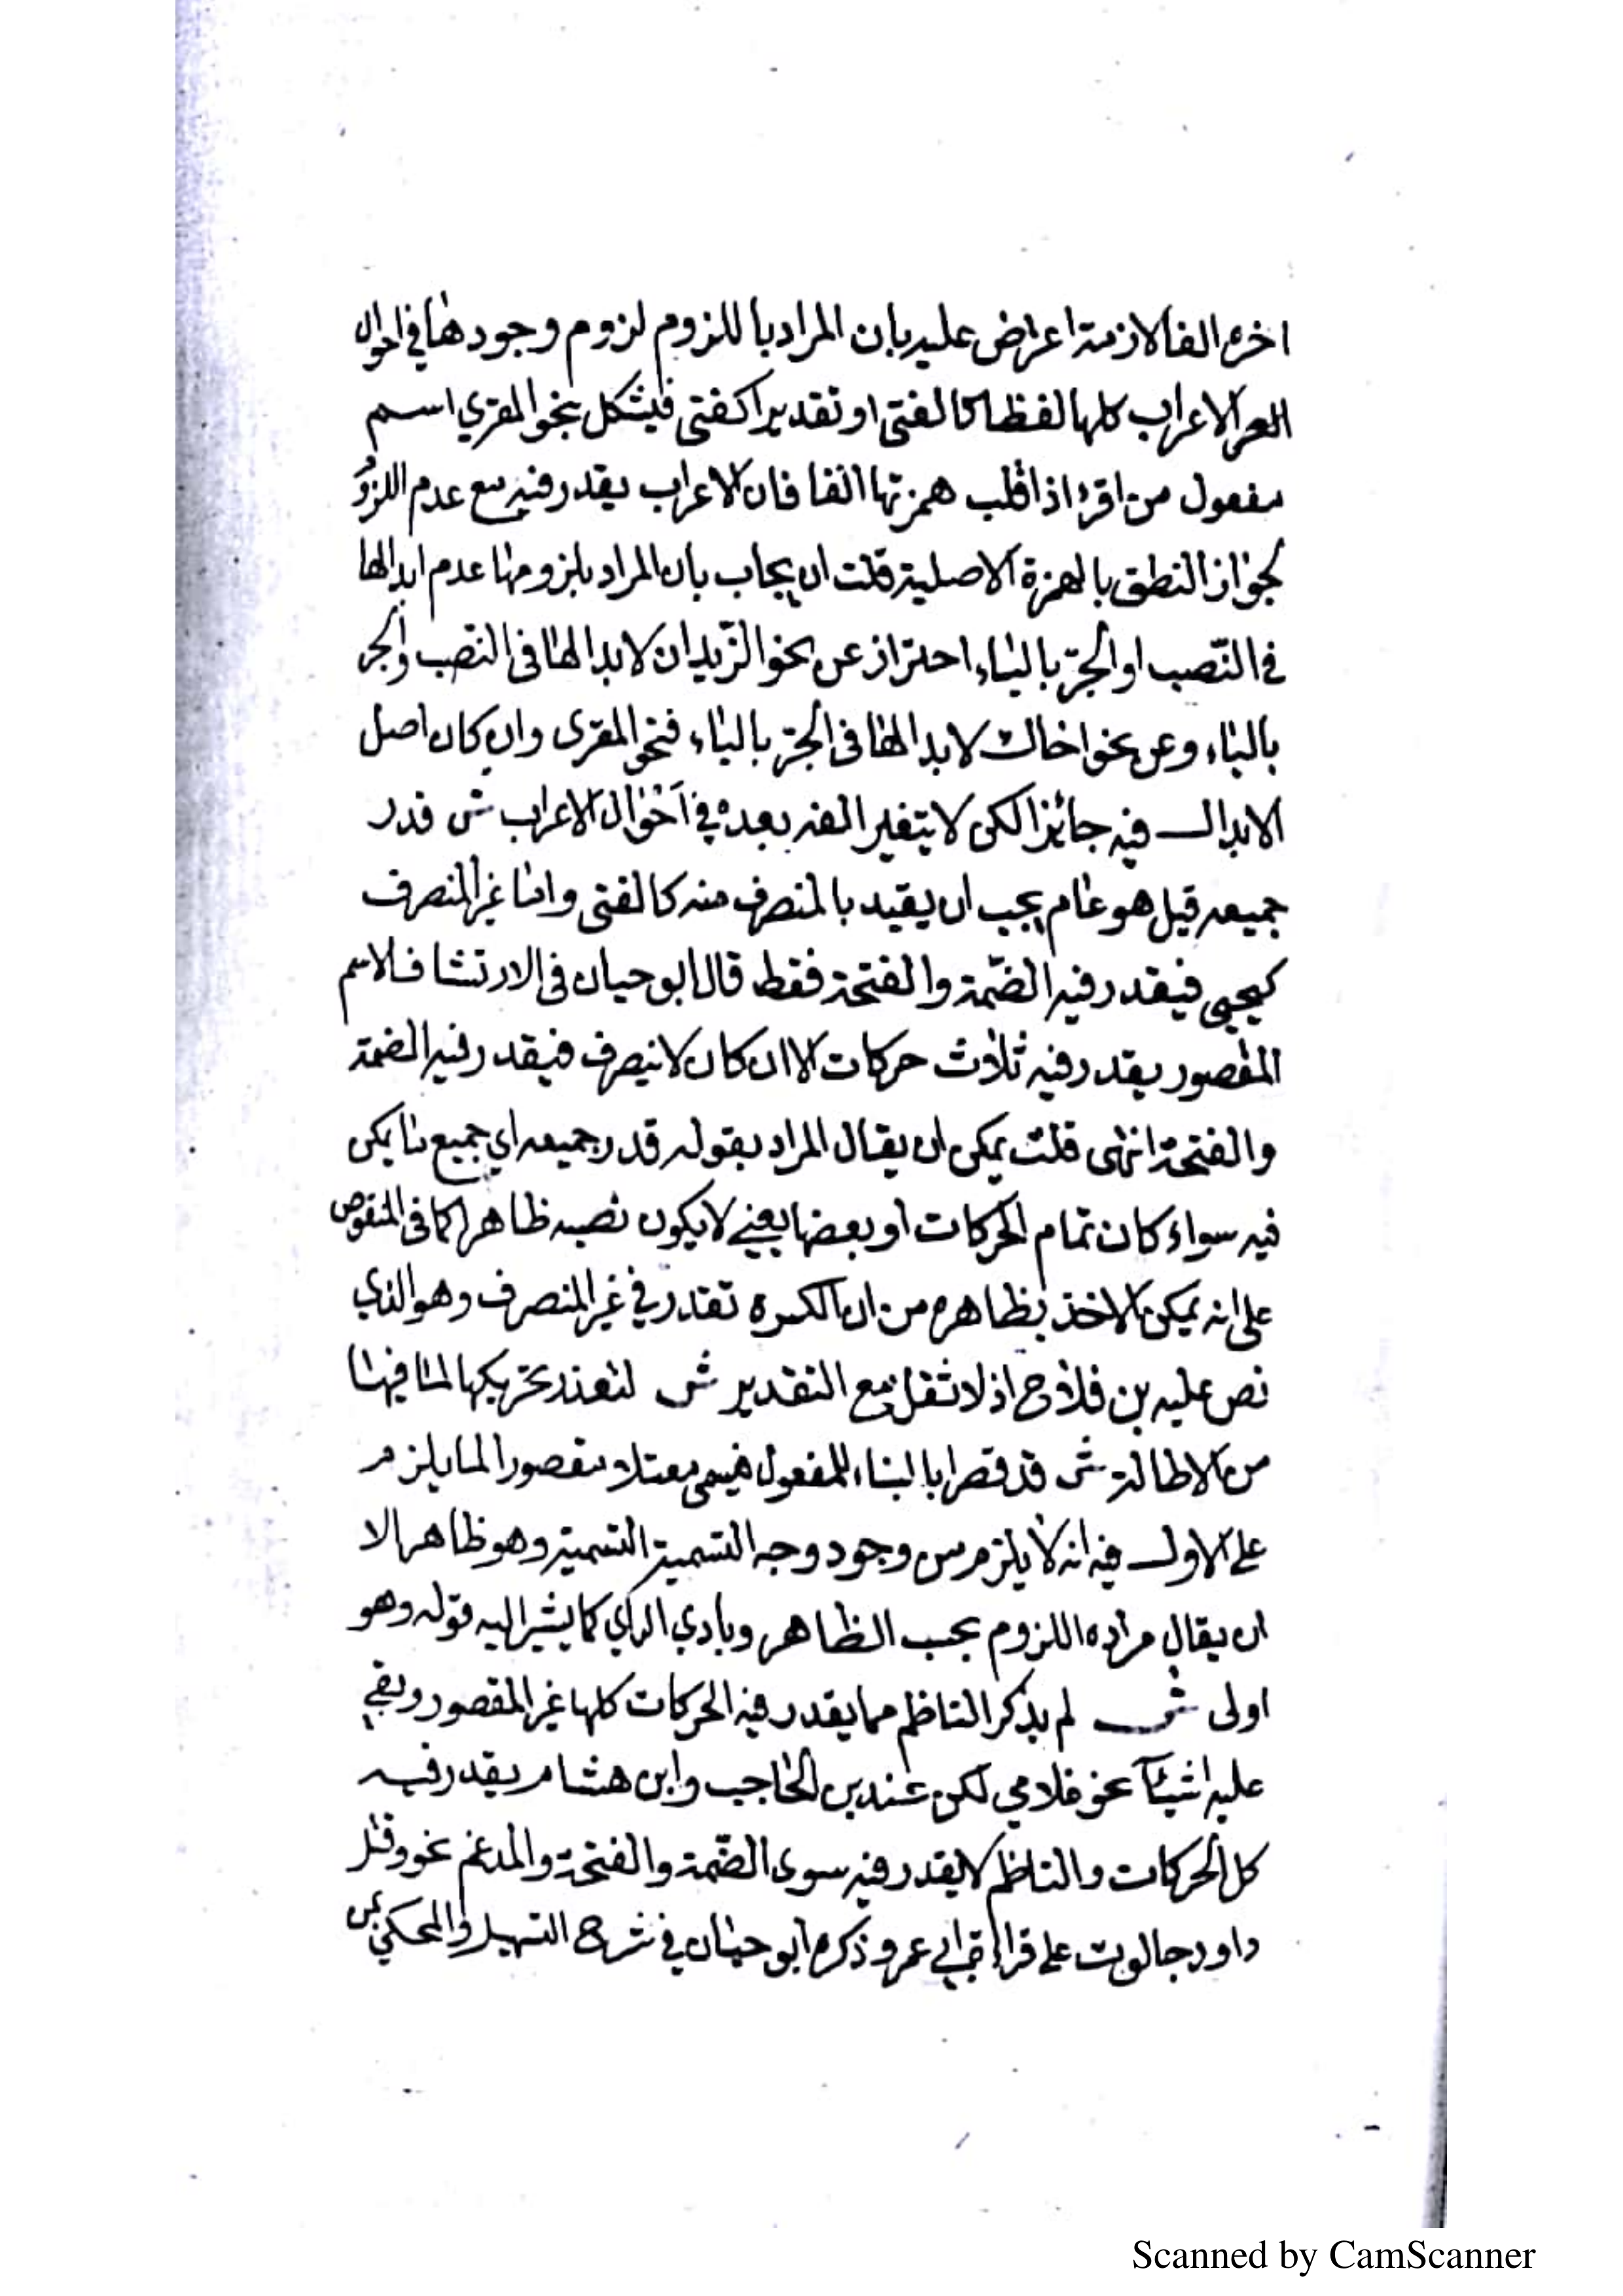 اخره الفا لازمة اعراض عليه بان المراد باللزوم لزوم وجودها في احوال
الاعراب كلها لفظا كالفتى او تقديرا كفتى فيشكل بنحو المقرى اسم
مفعول من اقرء اذا قلب همزتها الفا فان الاعراب يقدر فيه مع عدم اللزوم
لجواز النطق بالهمزة الاصلية قلت ان يجاب بان المراد بلزومها عدم ابدالها
في النّصب او الجرّ بالياء احتراز عن نحو الزّيدان لابدالها في النّصب والجر
بالياء وعن نحو اخاك لابدالها في الجرّ بالياء فنحو المقرى وان كان اصل
الابدال فيه جائزا لكن لا يتغير الفه بعده في احوال الاعراب ش قدر
جميعه قيل هو عام يجب ان يقيد بالمنصرف منه كالفتى واما غير المنصرف
كيحيى فيقدر فيه الضّمة والفتحة فقط قال ابو حيان في الارتشاف الاسم
المقصور يقدر فيه ثلاث حركات الا ان كان لا ينصرف فيقدر فيه الضمة
والفتحة انتهى قلت يمكن ان يقال المراد بقوله قدر جميعه اي جميع ما يمكن
فيه سواء كان تمام الحركات او بعضها يعني لا يكون نصبه ظاهرا كما في المنقوص
على انه يمكن الاخذ بظاهره من ان الكسره تقدر في غير المنصرف وهو الذي
نص عليه بن فلاح اذ لا ثقل مع التقدير ش لتعذر تحريكها لما فيها
من الاطالة ش قد قصرا بالبناء للمفعول فيسمى معتلا مقصورا لما يلزم
على الاول فيه انه لا يلزم من وجود وجه التسمية التسمية وهو ظاهر الا
ان يقال مراده اللزوم بحسب الظاهر وبادي الراي كما يشير اليه قوله وهو
اولى ش لم يذكر الناظم مما يقدر فيه الحركات كلها غير المقصور وبقي
عليه اشيآء نحو غلامي لكن عند بن الحاجب وابن هشام يقدر فيه
كل الحركات والناظم لا يقدر فيه سوى الضّمة والفتحة والمدغم نحو وقتل
داود جالوت على قراءة ابي عمرو ذكره ابو حيان في شرح التسهيل والمحكي بمن
Scanned by CamScanner